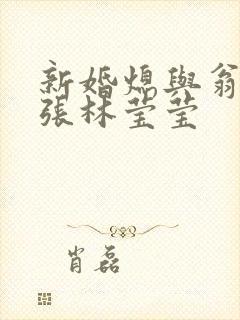 新婚熄與翁
張林莹莹
肖磊